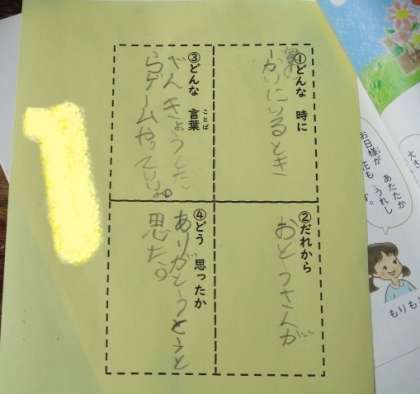 ①どんな 時に
家にいるとき
②だれから
おとうさんが
③どんな 言葉
ことば
べんきょうしたらゲームやっていいよ。
④どう 思ったか
ありがとうと
思た。
お日様が
あたたか
うれし
大き
もりもり